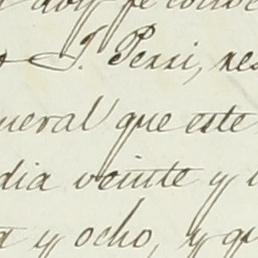 doy fe conoc
J. Perri, res
neral que este
dia veinte y
y ocho, y qu